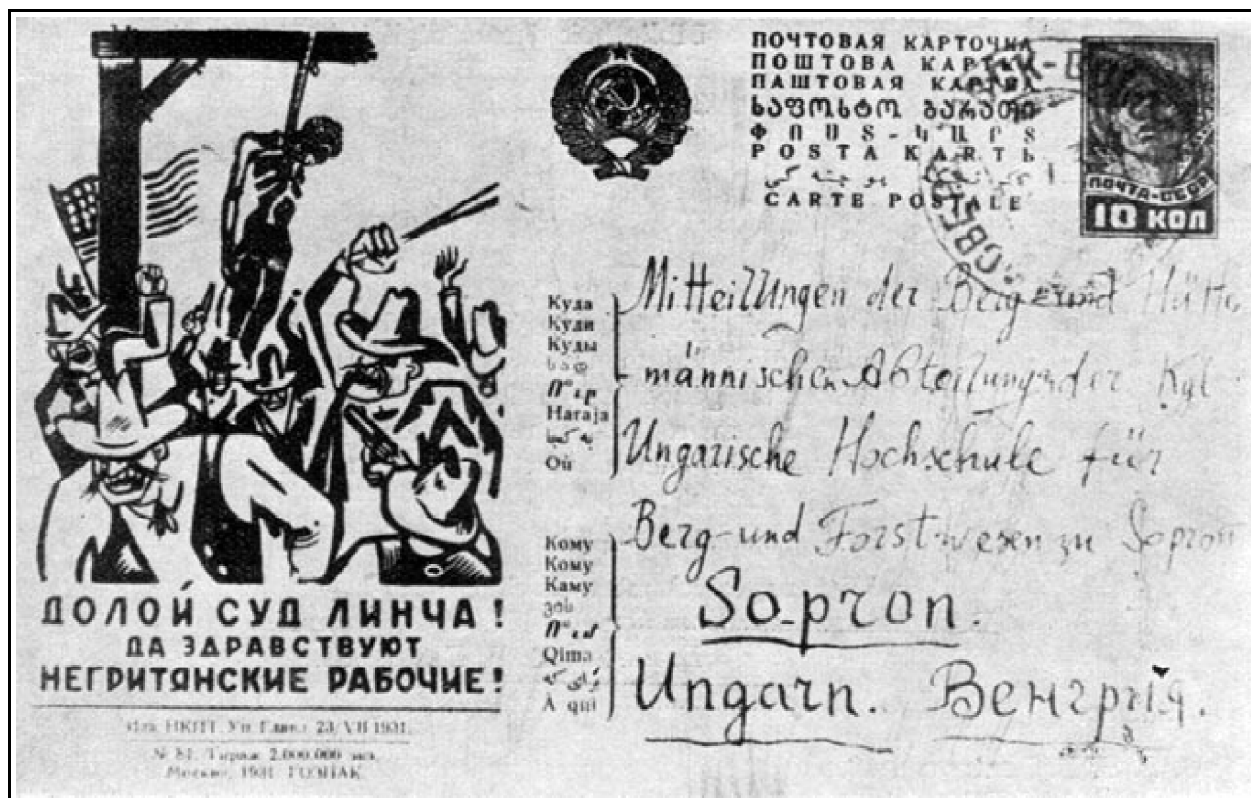 ПОЧТОВАЯ КАРТОЧКА
ПОШТОВА КАРТКА
ПАШТОВАЯ КАРТКА
ᲡᲐᲤᲝᲡᲢᲝ ᲑᲐᲠᲐᲗᲘ
ՓՈՍՏ-ՔԱՐՏ
POSTA KARTЬ
CARTE POSTALE
ПОЧТА-СССР
10 КОП
Куда
Куди
Куды
Haraja
Où
Mitteilungen der Berg- und
männischen Abteilung der Kgl
Ungarische Hochschule für
Berg- und Forstwesen zu Sopron
Кому
Кому
Каму
Qima
À qui
Sopron.
Ungarn. Венгрія.
ДОЛОЙ СУД ЛИНЧА!
ДА ЗДРАВСТВУЮТ
НЕГРИТЯНСКИЕ РАБОЧИЕ!
Изд. НКПТ. Уп. 23/VII 1931.
№ 81. Тираж 2.000.000 экз.
Москва, 1931. ГОЗНАК.